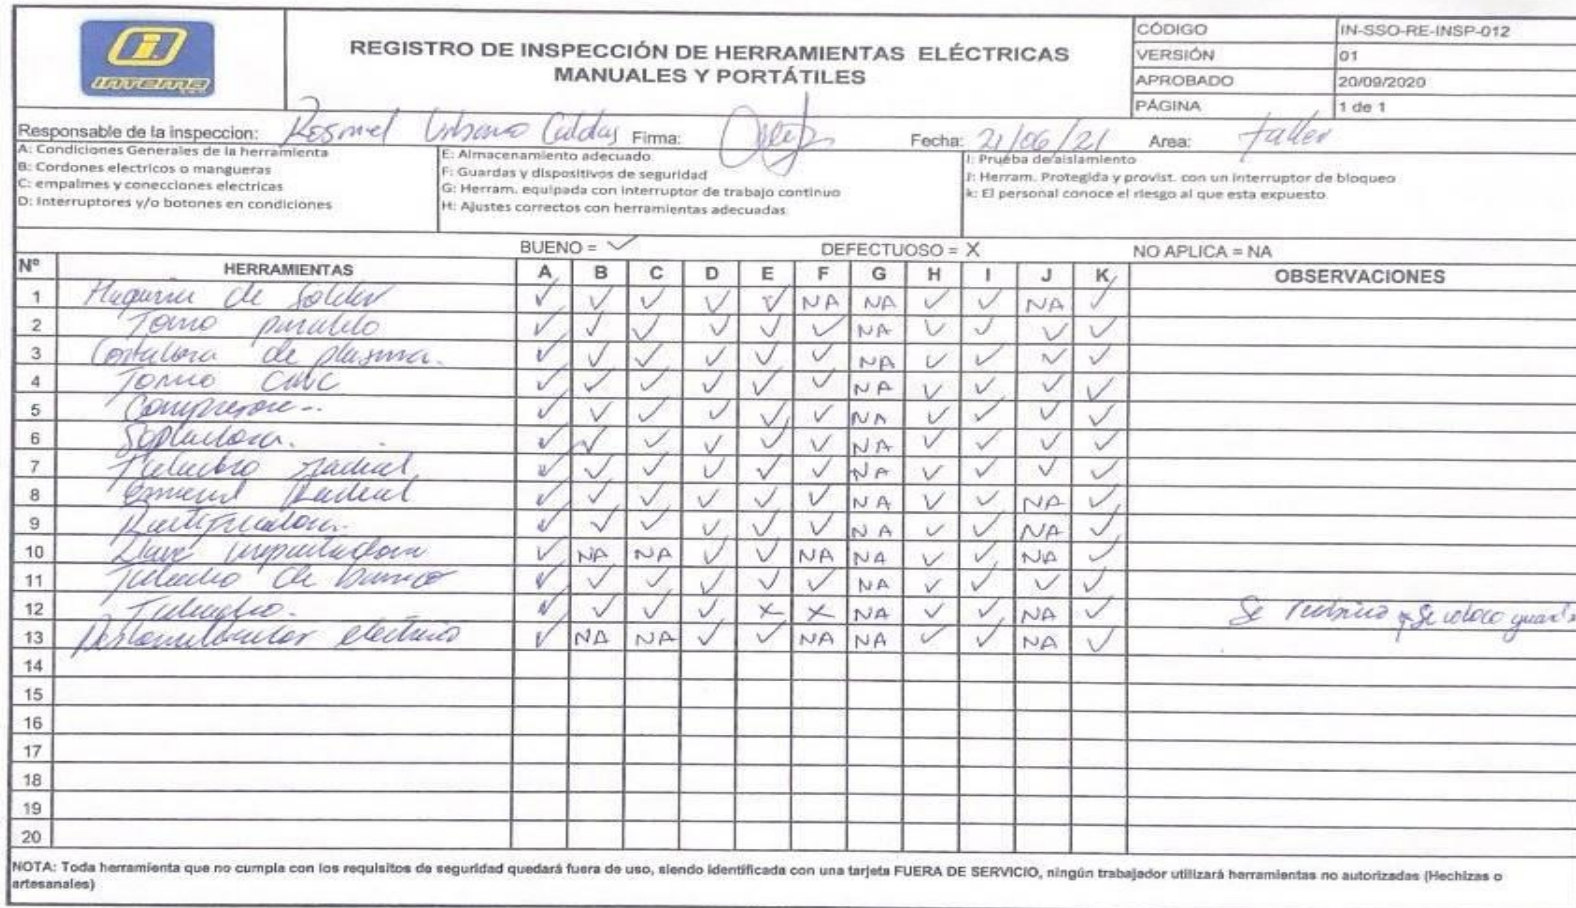 intema
REGISTRO DE INSPECCIÓN DE HERRAMIENTAS ELÉCTRICAS
MANUALES Y PORTÁTILES
CÓDIGO IN-SSO-RE-INSP-012
VERSIÓN 01
APROBADO 20/09/2020
PÁGINA 1 de 1
Responsable de la inspeccion: Rosmel Urbano Caldas Firma: Fecha: 21/06/21 Area: taller
A: Condiciones Generales de la herramienta
B: Cordones electricos o mangueras
C: empalmes y conecciones electricas
D: Interruptores y/o botones en condiciones
E: Almacenamiento adecuado
F: Guardas y dispositivos de seguridad
G: Herram. equipada con interruptor de trabajo continuo
H: Ajustes correctos con herramientas adecuadas
I: Prueba de aislamiento
J: Herram. Protegida y provist. con un interruptor de bloqueo
k: El personal conoce el riesgo al que esta expuesto
BUENO = ✓ DEFECTUOSO = X NO APLICA = NA
Nº HERRAMIENTAS A B C D E F G H I J K OBSERVACIONES
1 Maquina de Solder ✓ ✓ ✓ ✓ ✓ NA NA ✓ ✓ NA ✓
2 Torno paralelo ✓ ✓ ✓ ✓ ✓ ✓ NA ✓ ✓ ✓ ✓
3 Cortadora de plasma. ✓ ✓ ✓ ✓ ✓ ✓ NA ✓ ✓ ✓ ✓
4 Torno CNC ✓ ✓ ✓ ✓ ✓ ✓ NA ✓ ✓ ✓ ✓
5 ✓ ✓ ✓ ✓ ✓ ✓ NA ✓ ✓ ✓ ✓
6 Sopladora. ✓ ✓ ✓ ✓ ✓ ✓ NA ✓ ✓ ✓ ✓
7 Taladro radial ✓ ✓ ✓ ✓ ✓ ✓ NA ✓ ✓ ✓ ✓
8 Esmeril Radial ✓ ✓ ✓ ✓ ✓ ✓ NA ✓ ✓ NA ✓
9 Rectificadora. ✓ ✓ ✓ ✓ ✓ ✓ NA ✓ ✓ NA ✓
10 Llave impactadora ✓ NA NA ✓ ✓ NA NA ✓ ✓ NA ✓
11 Taladro de banco ✓ ✓ ✓ ✓ ✓ ✓ NA ✓ ✓ ✓ ✓
12 Taladro. ✓ ✓ ✓ ✓ X X NA ✓ ✓ NA ✓ Se y se coloco
13 electrico ✓ NA NA ✓ ✓ NA NA ✓ ✓ NA ✓
14
15
16
17
18
19
20
NOTA: Toda herramienta que no cumpla con los requisitos de seguridad quedará fuera de uso, siendo identificada con una tarjeta FUERA DE SERVICIO, ningún trabajador utilizará herramientas no autorizadas (Hechizas o
artesanales)